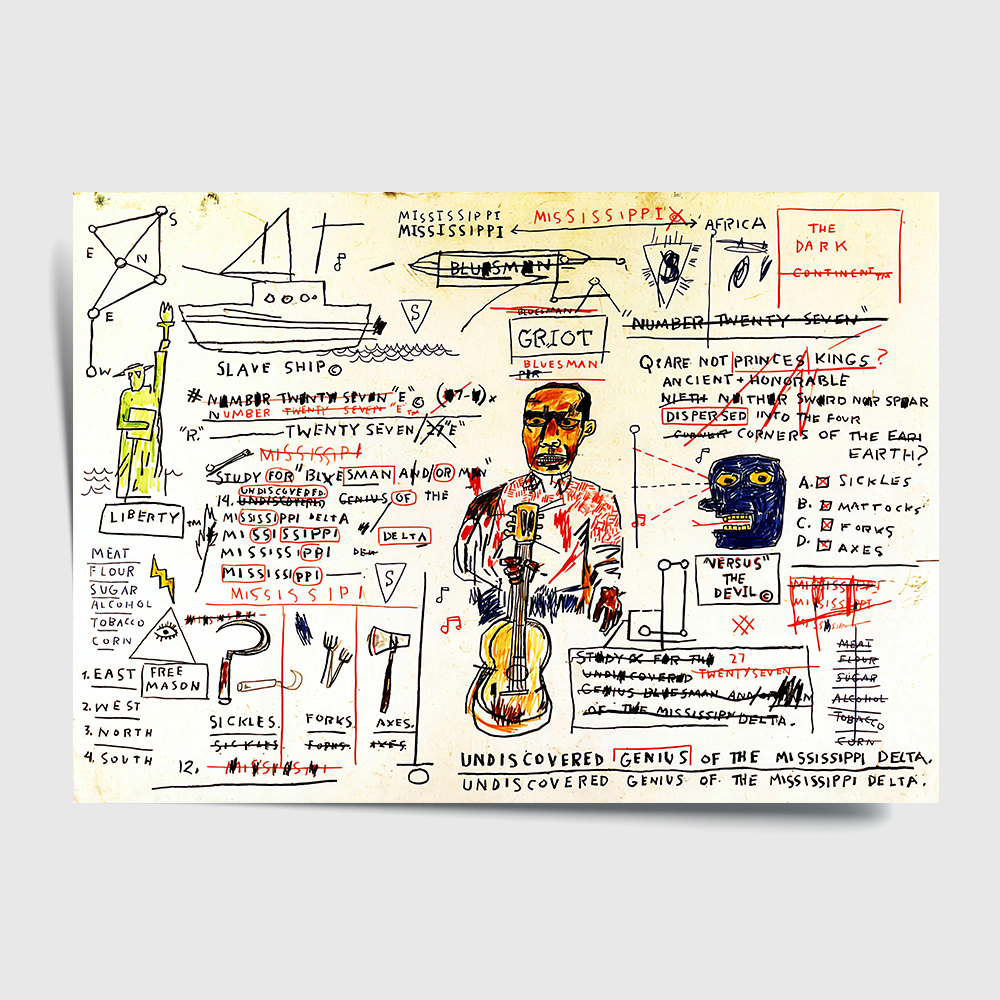 S
E
N
E
W
MISSISSIPPI
MISSISSIPPI
MISSISSIPPI
AFRICA
THE
DARK
CONTINENT™
BLUESMAN
S
BLUESMAN
GRIOT
BLUESMAN
"NUMBER TWENTY SEVEN"
SLAVE SHIP©
# NUMBER TWENTY SEVEN "E" ©
NUMBER TWENTY SEVEN "E"™
"R." TWENTY SEVEN "27"E"
MISSISSIPI
STUDY FOR "BLUESMAN AND/OR MEN"
UNDISCOVERED
14. UNDISCOVERED GENIUS OF THE
MISSISSIPPI DELTA
MISSISSIPPI DELTA
MISSISSIPPI
MISSISSIPPI
S
MISSISSIPI
LIBERTY ™
MEAT
FLOUR
SUGAR
ALCOHOL
TOBACCO
CORN
FREE
MASON
1. EAST
2. WEST
3. NORTH
4. SOUTH
SICKLES. FORKS. AXES.
SICKLES. FORKS. AXES.
12.
Q: ARE NOT PRINCES KINGS?
ANCIENT + HONORABLE
NIETH NEITHER SWORD NOR SPEAR
DISPERSED INTO THE FOUR
CORNERS OF THE EARI
EARTH?
A. SICKLES
B. MATTOCKS
C. FORKS
D. AXES
"VERSUS"
THE
DEVIL©
MISSISSIPPI
MISSISSIPPI
MEAT
FLOUR
SUGAR
ALCOHOL
TOBACCO
CORN
STUDY FOR THE 27
UNDISCOVERED TWENTYSEVEN
GENIUS BLUESMAN AND/OR
OF THE MISSISSIPPI DELTA.
UNDISCOVERED GENIUS OF THE MISSISSIPPI DELTA.
UNDISCOVERED GENIUS OF THE MISSISSIPPI DELTA.